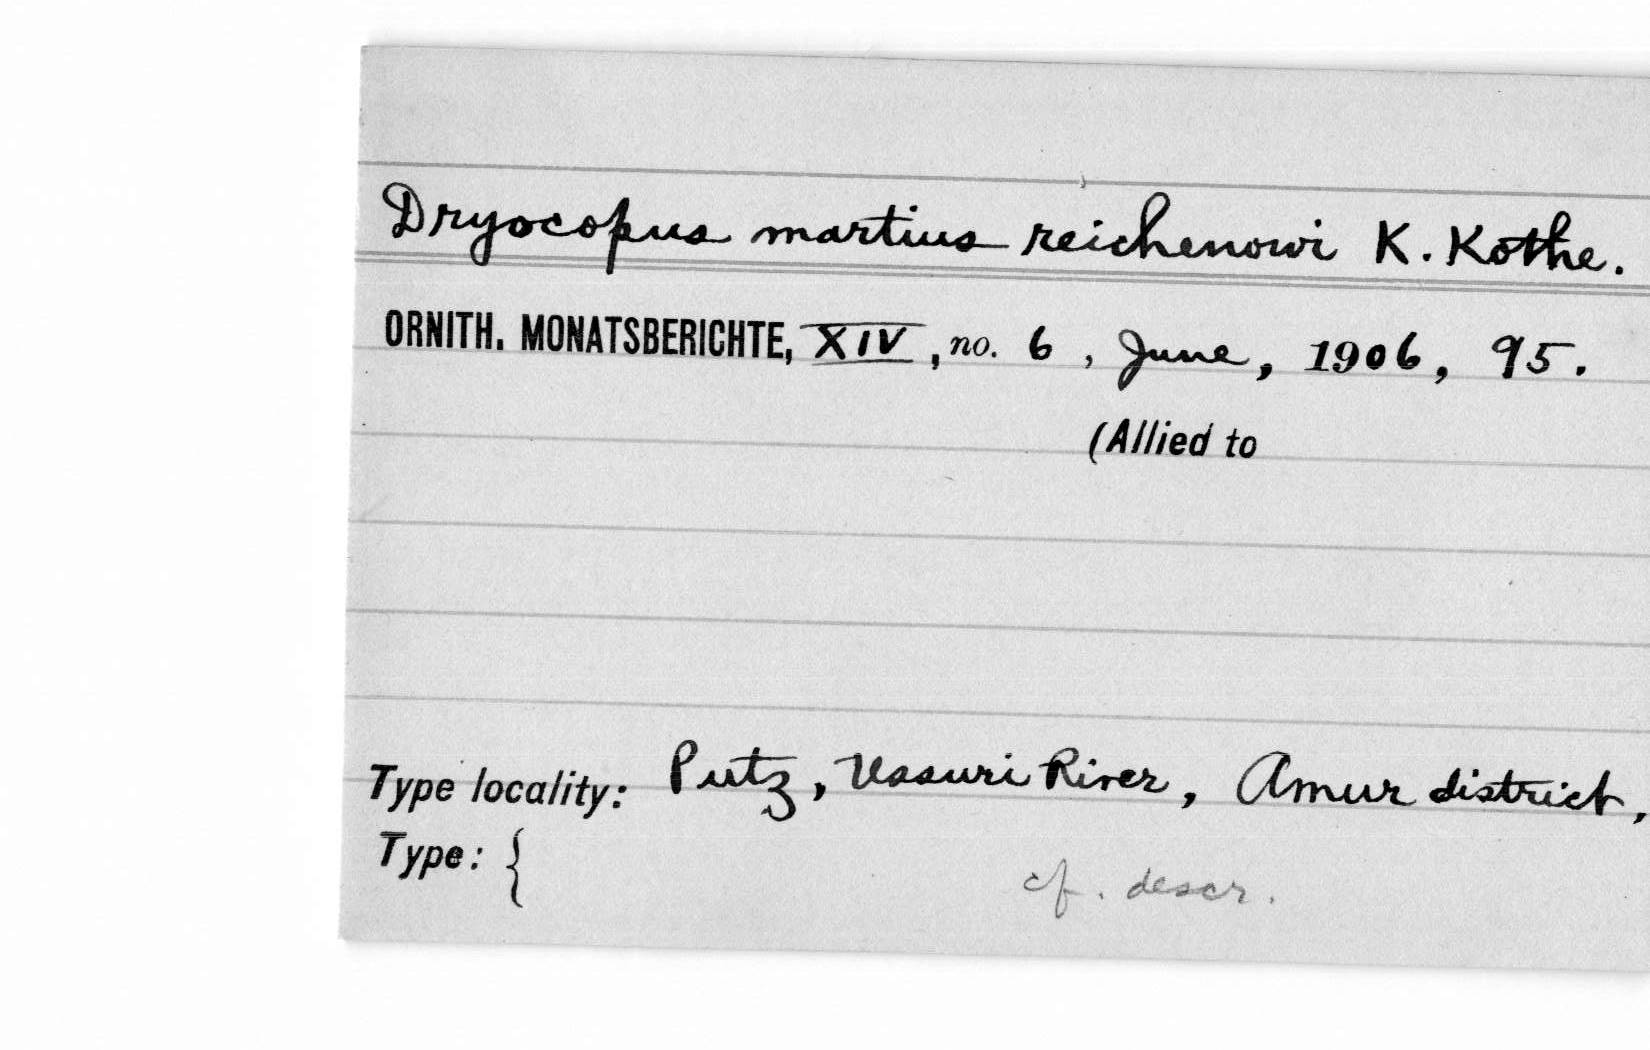 Dryocopus martius reichenowi K. Kothe.
ORNITH. MONATSBERICHTE, XIV, no. 6, June, 1906, 95.
(Allied to
Type locality: Putz, Ussuri River, Amur district,
Type: {
cf. descr.